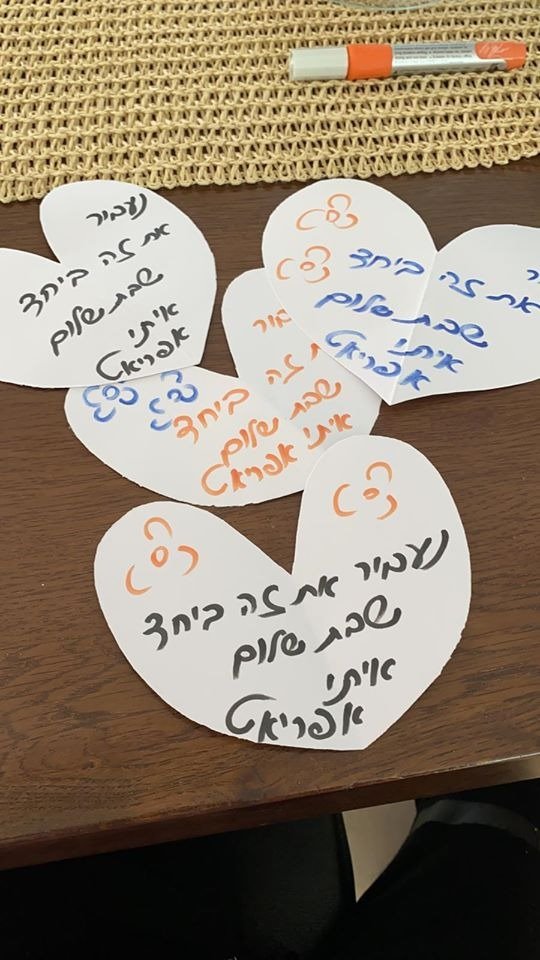 נעביר
את זה ביחד
שבת שלום
איתי
אפריאט
את זה ביחד
שבת שלום
איתי
אפריאט
זה ביחד
שבת שלום
איתי אפריאט
נעביר את זה ביחד
שבת שלום
איתי
אפריאט